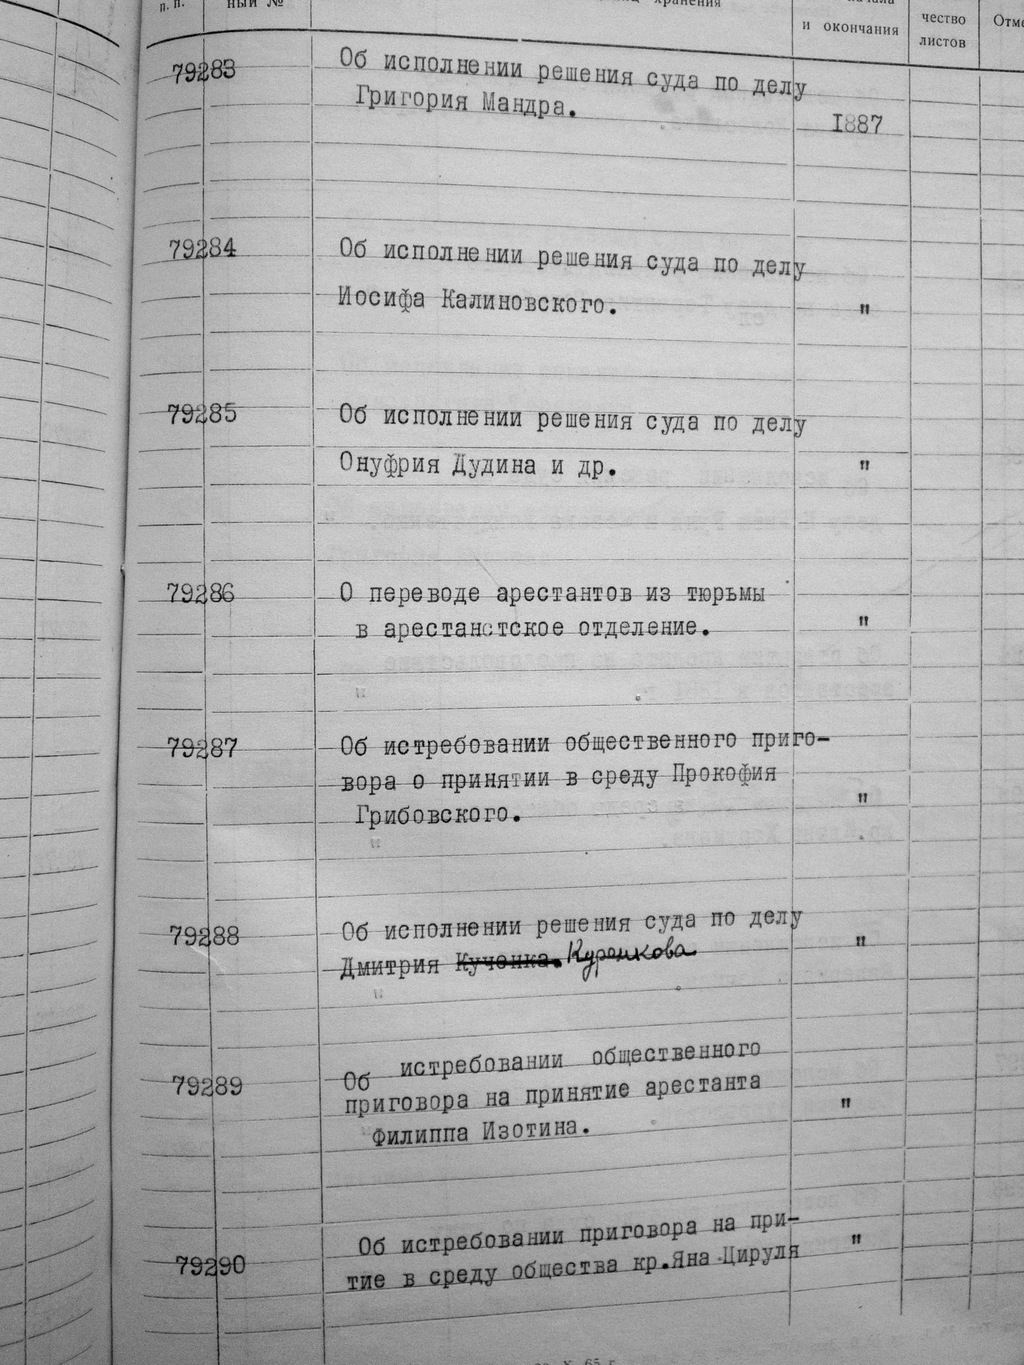 п. п.
ный №
хранения
начала
и окончания
чество
листов
Отме
79283
Об исполнении решения суда по делу
Григория Мандра.
1887
79284
Об исполнении решения суда по делу
Иосифа Калиновского.
"
79285
Об исполнении решения суда по делу
Онуфрия Дудина и др.
"
79286
О переводе арестантов из тюрьмы
в арестанстское отделение.
"
79287
Об истребовании общественного приго-
вора о принятии в среду Прокофия
Грибовского.
"
79288
Об исполнении решения суда по делу
Дмитрия Кученка. Куренкова
"
79289
Об истребовании общественного
приговора на принятие арестанта
Филиппа Изотина.
"
79290
Об истребовании приговора на при-
тие в среду общества кр.Яна Цируля
"
X 65 г.